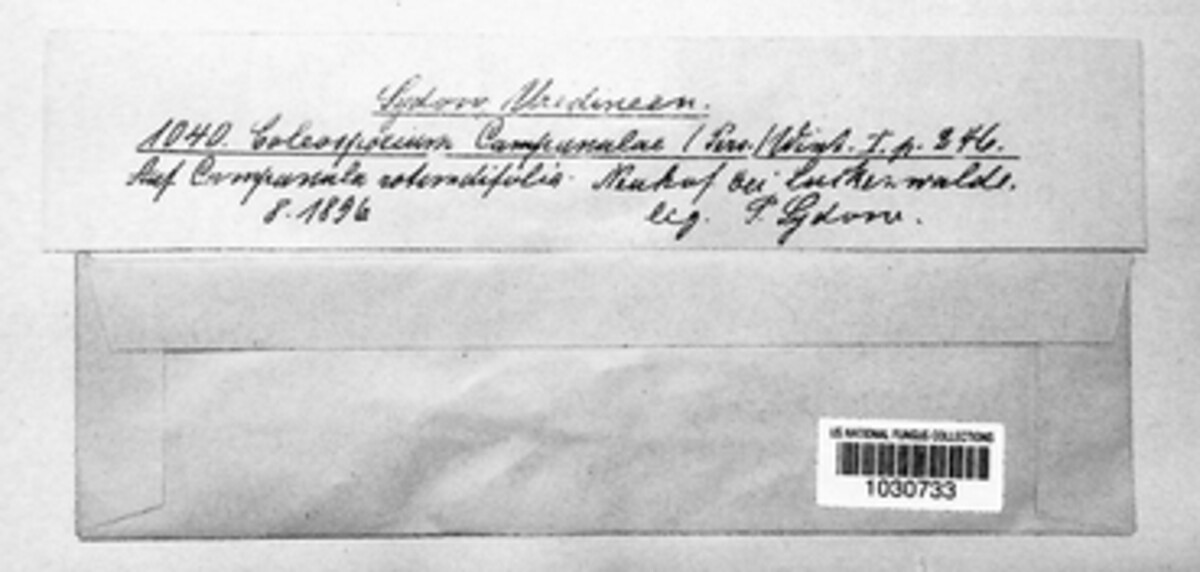 Sydow, Uredineen.
1040. Coleosporium Campanulae (Pers.) Wint. I. p. 246.
Auf Campanula rotundifolia. Neuhof bei Luckenwalde.
8. 1896 leg. P. Sydow.
US NATIONAL FUNGUS COLLECTIONS
1030733